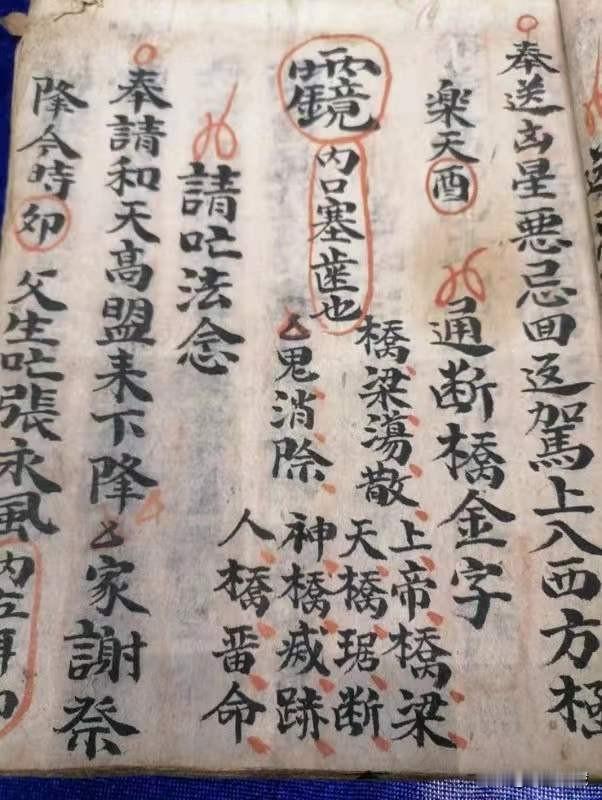 奉送出星悪忌回返駕上八西方極
楽天酉
通断橋金字
上帝橋梁
橋梁蕩散
天橋琚断
内口塞歯也
鬼消除
神橋烕跡
人橋畨命
請吂法念
奉請和天高盟未下降厶家謝祭
降今時卯
父生吂張永風